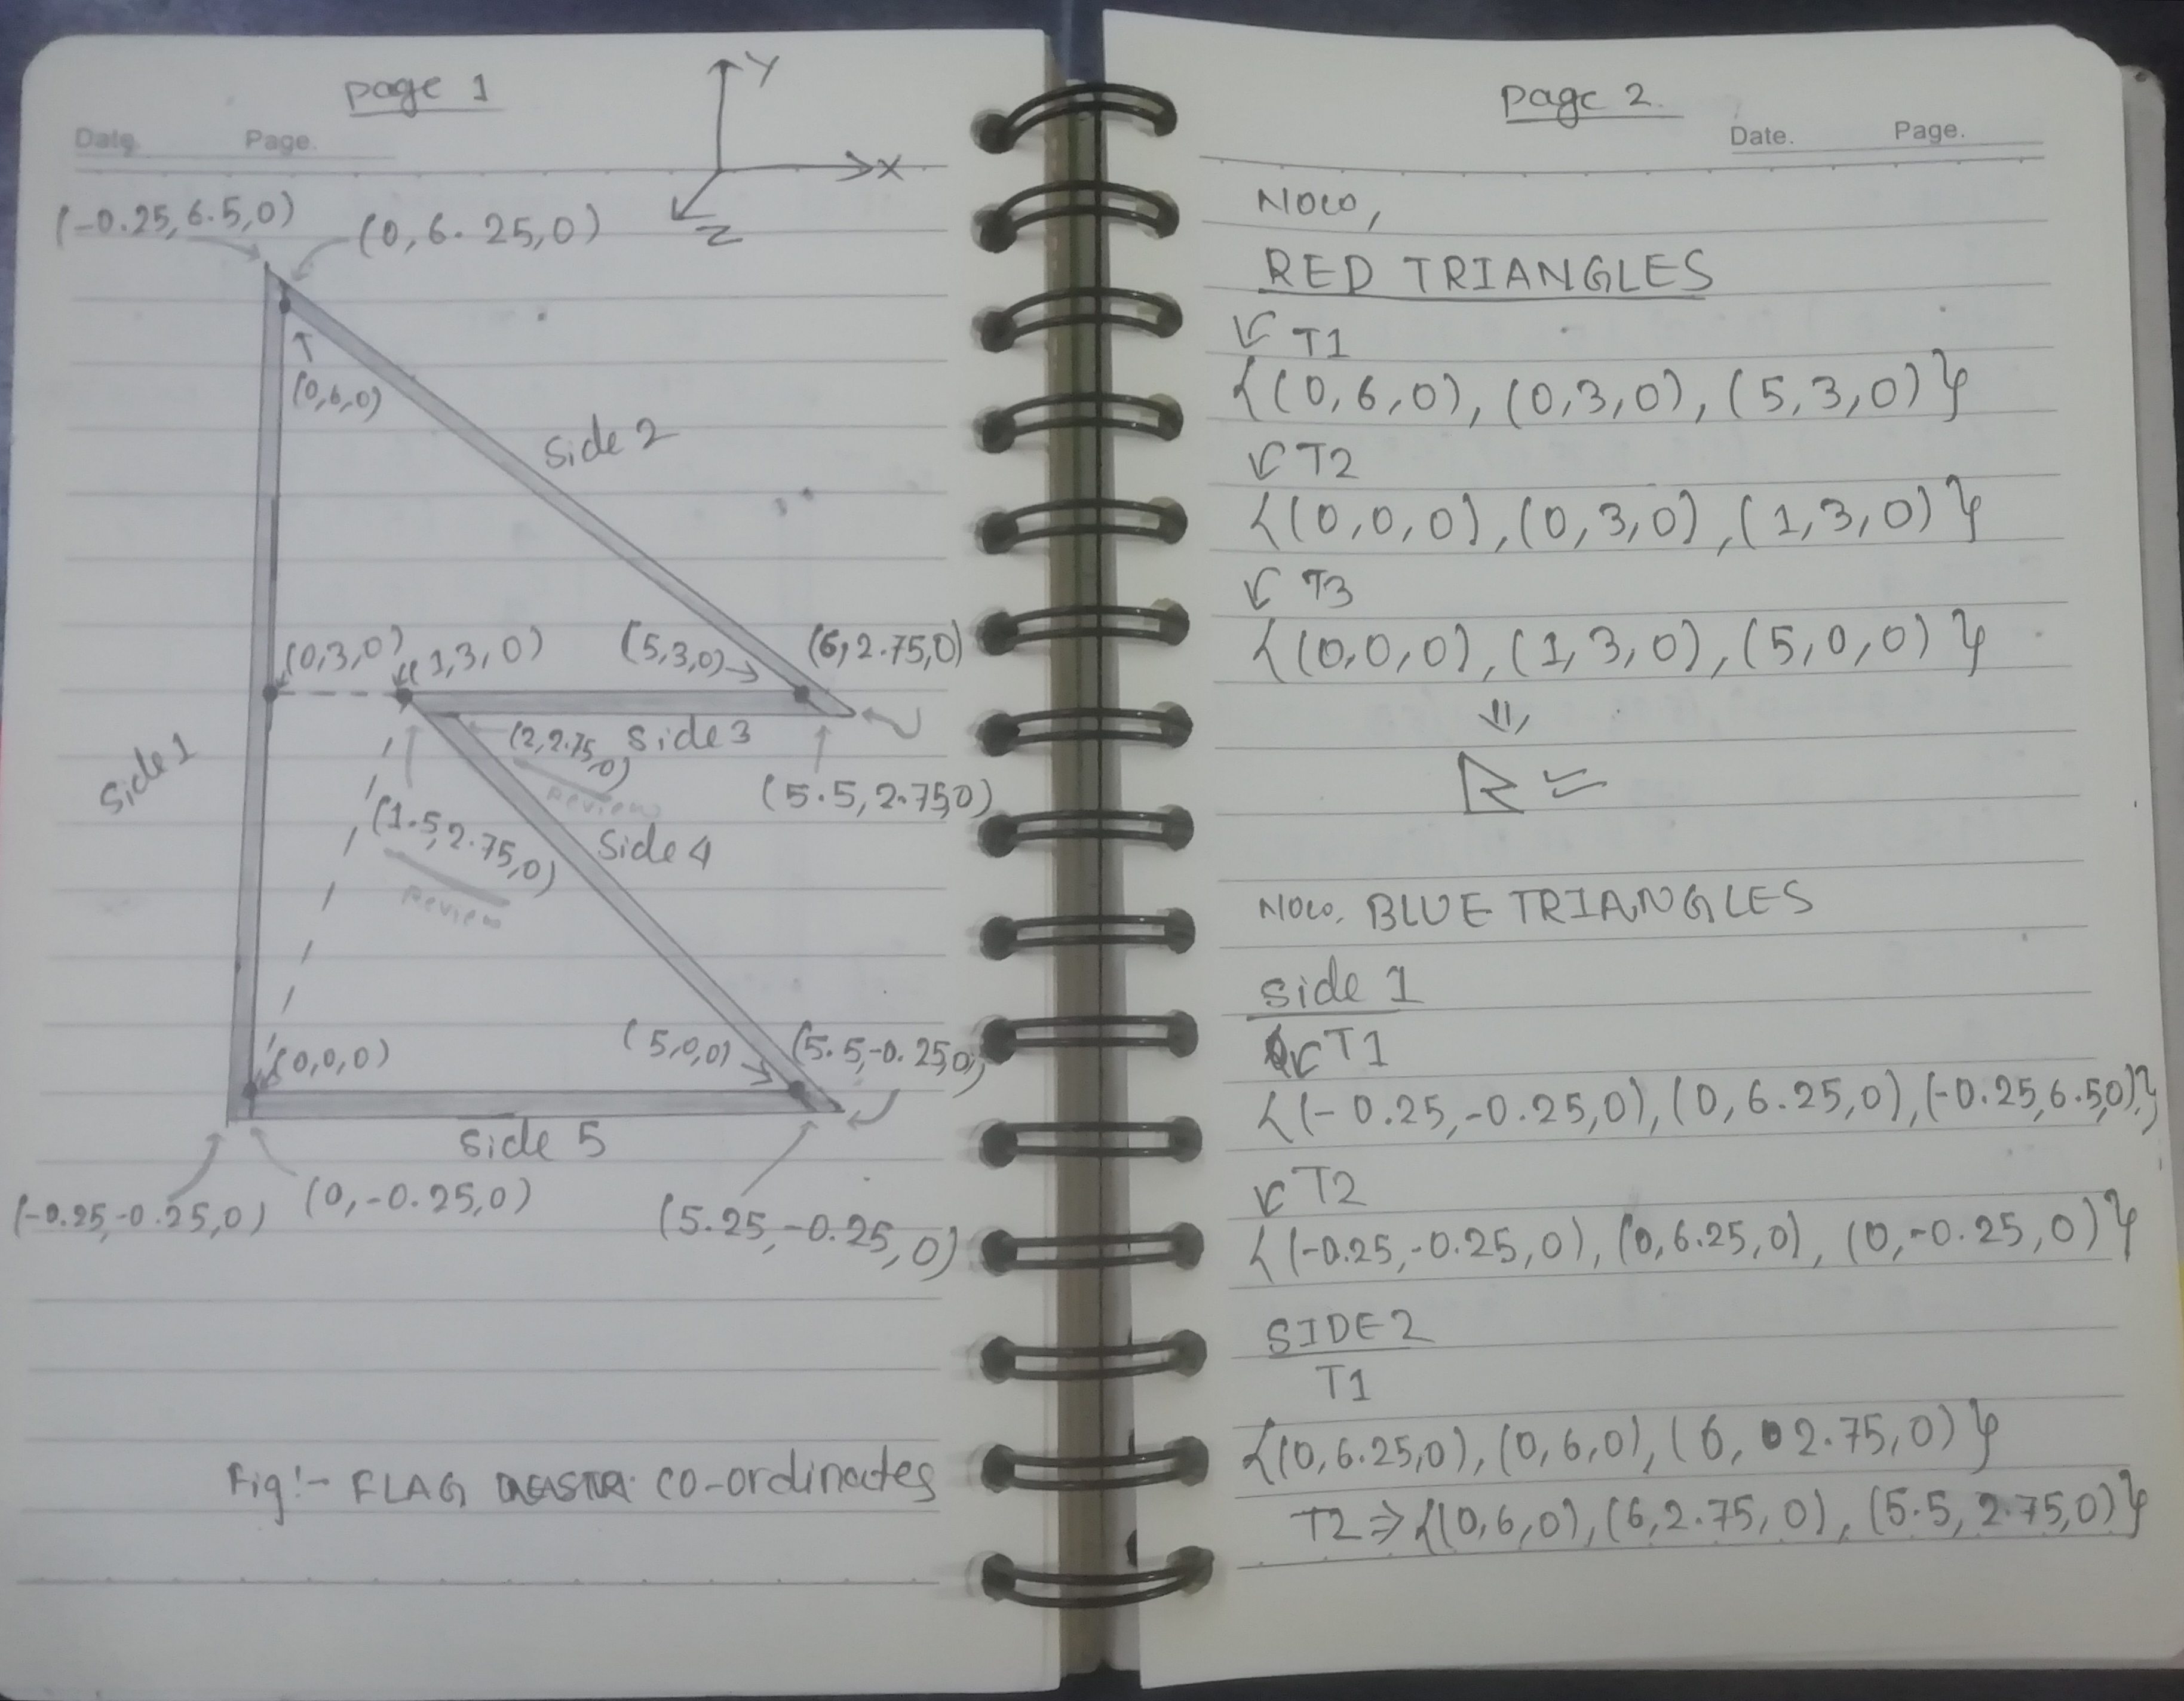 page 1
Date. Page.
Y
X
Z
(-0.25,6.5,0)
(0,6.25,0)
(0,6,0)
Side 2
(0,3,0)
(1,3,0)
(5,3,0)
(6,2.75,0)
(2,2.75,0)
Review
Side 3
(5.5,2.75,0)
Side 1
(1.5,2.75,0)
Review
Side 4
(0,0,0)
(5,0,0)
(5.5,-0.25,0)
Side 5
(-0.25,-0.25,0)
(0,-0.25,0)
(5.25,-0.25,0)
Fig:- FLAG CO-ordinates
page 2
Date. Page.
Now,
RED TRIANGLES
T1
{(0,6,0), (0,3,0), (5,3,0)}
T2
{(0,0,0), (0,3,0), (1,3,0)}
T3
{(0,0,0), (1,3,0), (5,0,0)}
Now, BLUE TRIANGLES
Side 1
T1
{(-0.25,-0.25,0), (0,6.25,0), (-0.25,6.5,0)}
T2
{(-0.25,-0.25,0), (0,6.25,0), (0,-0.25,0)}
SIDE 2
T1
{(0,6.25,0), (0,6,0), (6, 2.75,0)}
T2 ⇒ {(0,6,0), (6,2.75,0), (5.5,2.75,0)}